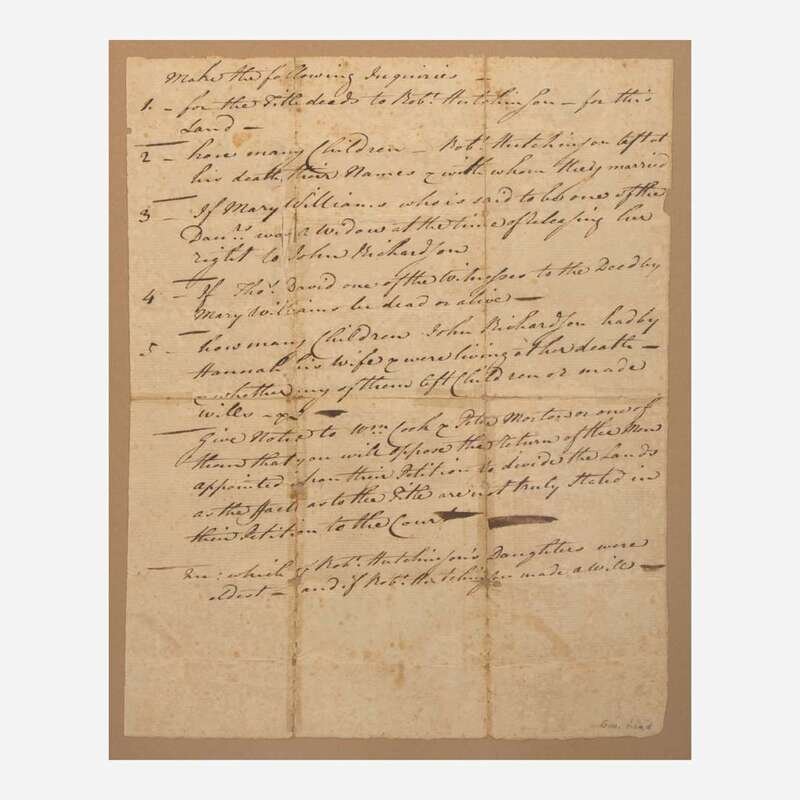 Make the following Inquiries —
1 – for the Title deeds to Robt. Hutchinson – for this
Land –
2 – how many Children – Robt. Hutchinson left at
his death, their Names & with whom they married
3 – If Mary Williams who is said to be one of the
Daurs. was a widow at the time of releasing her
right to John Richardson
4 – If Thos. David one of the witnesses to the Deed by
Mary Williams be dead or alive –
5 – how many Children John Richardson had by
Hannah his wife & were living at her death –
& whether any of them left Children or made
wills – &
Give Notice to Wm Cook & Peter Morton or one of
them that you will oppose the return of the Men
appointed upon their Petition to divide the Lands
as the facts as to the Title are not truly Stated in
their Petition to the Court
In: which of Robt. Hutchinson's Daughters were
eldest – and if Robt. Hutchinson made a will –